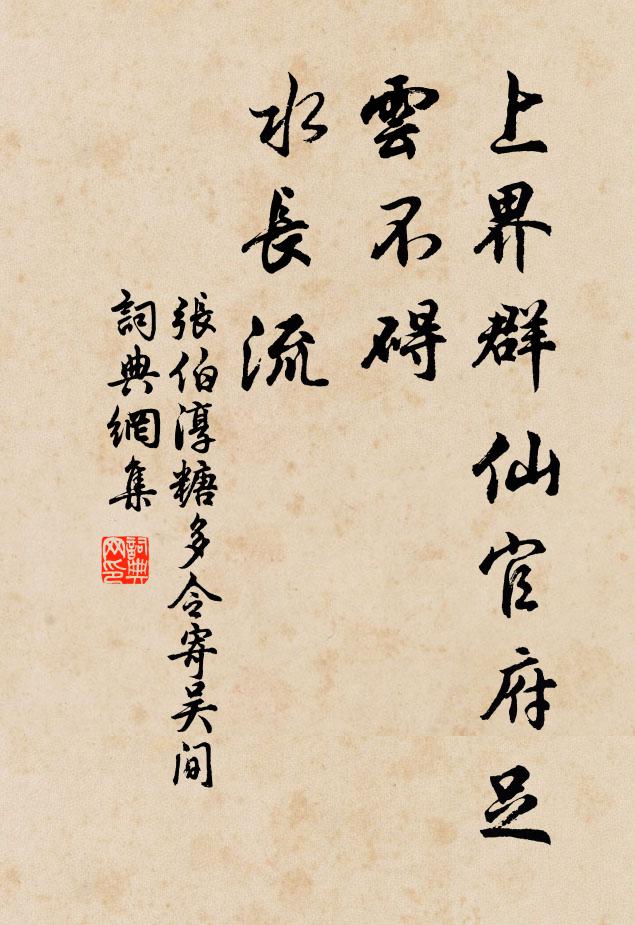 上界群仙官府足
雲不碍
水長流
張伯淳糖多令寄吴间
詞典網集
詞典
网印